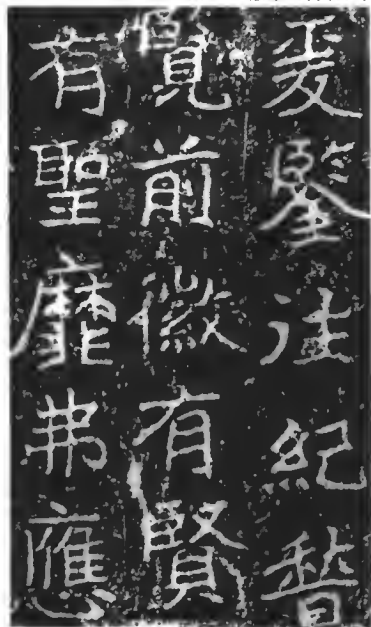 爰鑒往紀暜
覽前徽有賢
有聖靡弗應